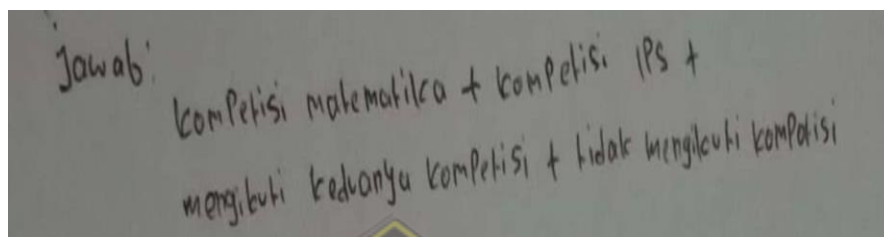 Jawab:
kompetisi matematika + kompetisi IPS +
mengikuti keduanya kompetisi + tidak mengikuti kompotisi